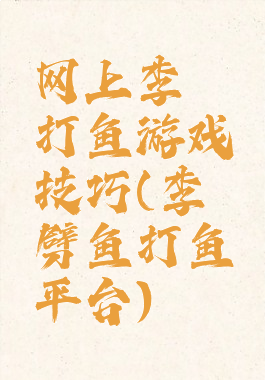 网上李
打鱼游戏
技巧(李
劈鱼打鱼
平台)